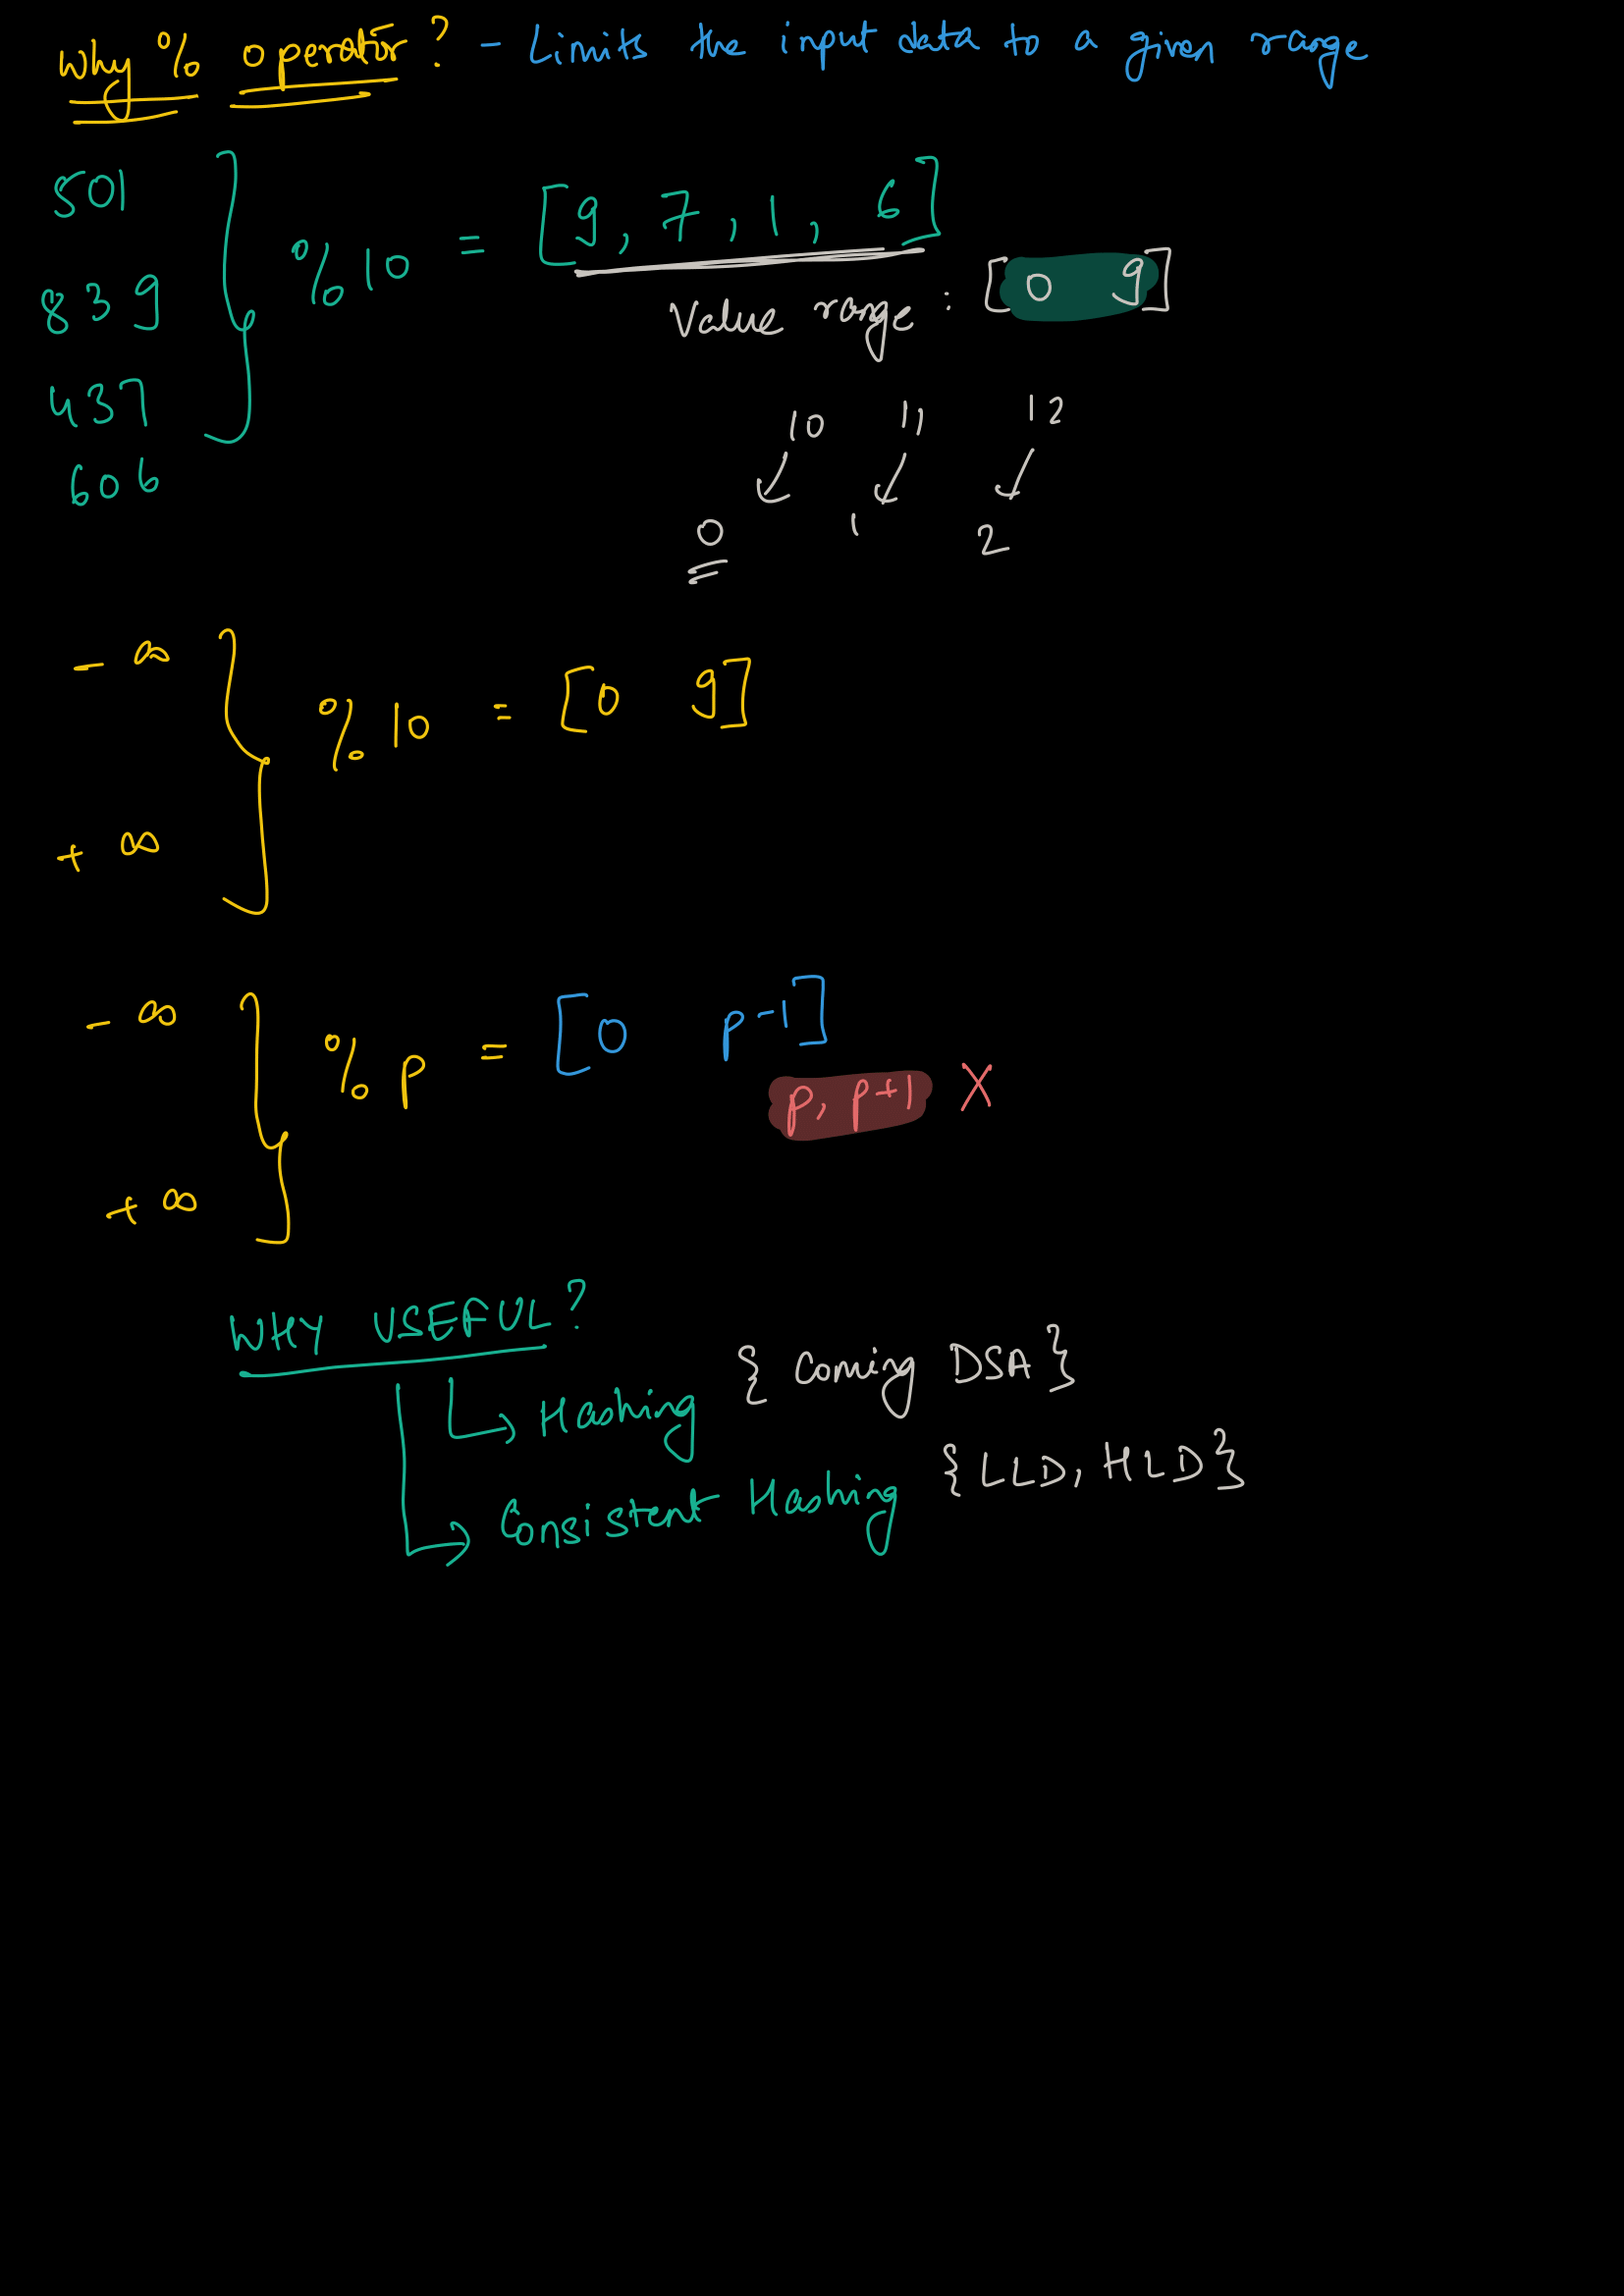 Why % operator? - Limits the input data to a given range
501
839
437
606
} %10 = [9, 7, 1, 6]
Value range : [0 9]
10 11 12
0 1 2
- ∞
+ ∞
} %10 = [0 9]
- ∞
+ ∞
} % p = [0 p-1]
p, p+1 X
WHY USEFUL?
Hashing { Coming DSA}
Consistent Hashing {LLD, HLD}